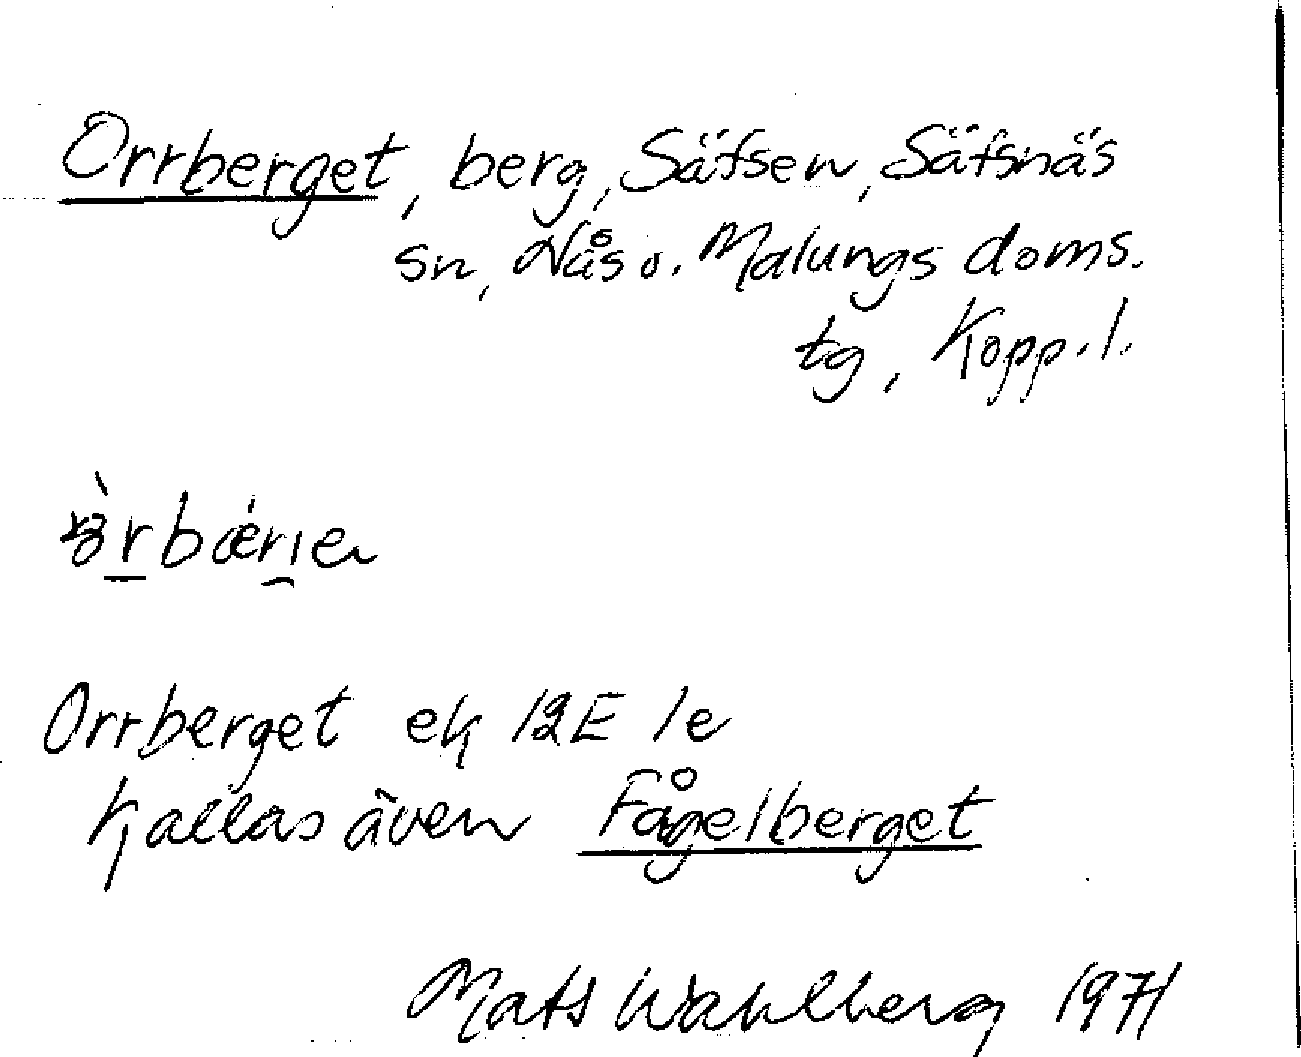 Orrberget, berg, Säfsen, Säfsnäs
sn, Nås o. Malungs doms.
tg, Kopp. l.
Orrberget ek 12E 1e
kallas även Fågelberget
Mats Wahlberg 1971